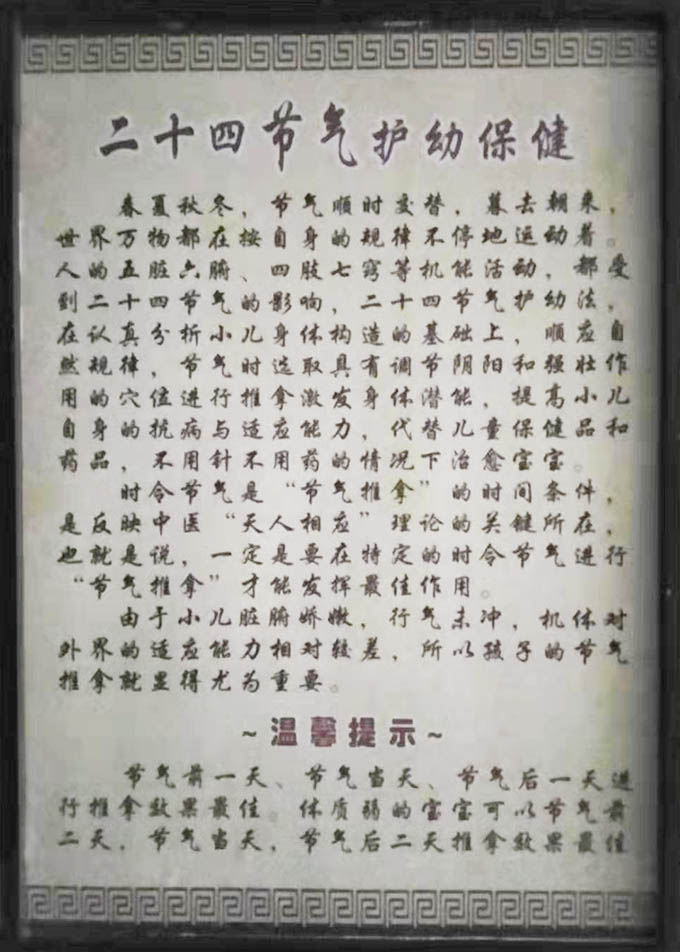 二十四节气护幼保健
春夏秋冬，节气顺时交替，暮去朝来，
世界万物都在按自身的规律不停地运动着。
人的五脏六腑、四肢七窍等机能活动，都受
到二十四节气的影响，二十四节气护幼法，
在认真分析小儿身体构造的基础上，顺应自
然规律，节气时选取具有调节阴阳和强壮作
用的穴位进行推拿激发身体潜能，提高小儿
自身的抗病与适应能力，代替儿童保健品和
药品，不用针不用药的情况下治愈宝宝。
时令节气是“节气推拿”的时间条件，
是反映中医“天人相应”理论的关键所在，
也就是说，一定是要在特定的时令节气进行
“节气推拿”才能发挥最佳作用。
由于小儿脏腑娇嫩，行气未冲，机体对
外界的适应能力相对较差，所以孩子的节气
推拿就显得尤为重要。
~温馨提示~
节气前一天、节气当天、节气后一天进
行推拿效果最佳。体质弱的宝宝可以节气前
二天，节气当天，节气后二天推拿效果最佳